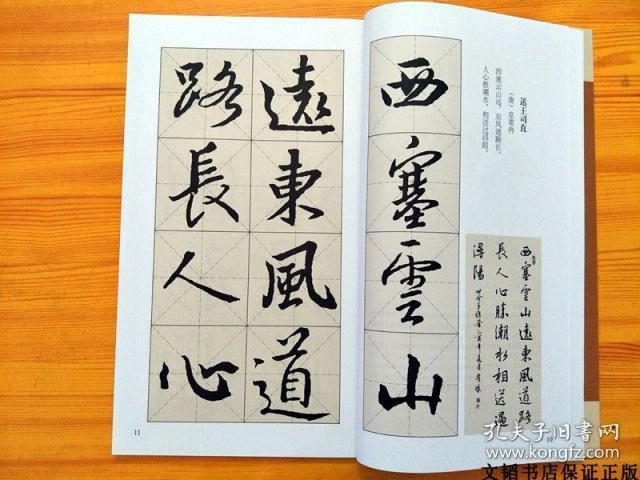 送王司直
（唐）皇甫冉
西塞云山远，东风道路长。
人心胜潮水，相送过浔阳。
西塞雲山
遠東風道
路長人心
西塞雲山遠東風道路
長人心勝潮水相送過
潯陽
10
11
孔夫子旧书网
www.kongfz.com
文韬书店保证正版